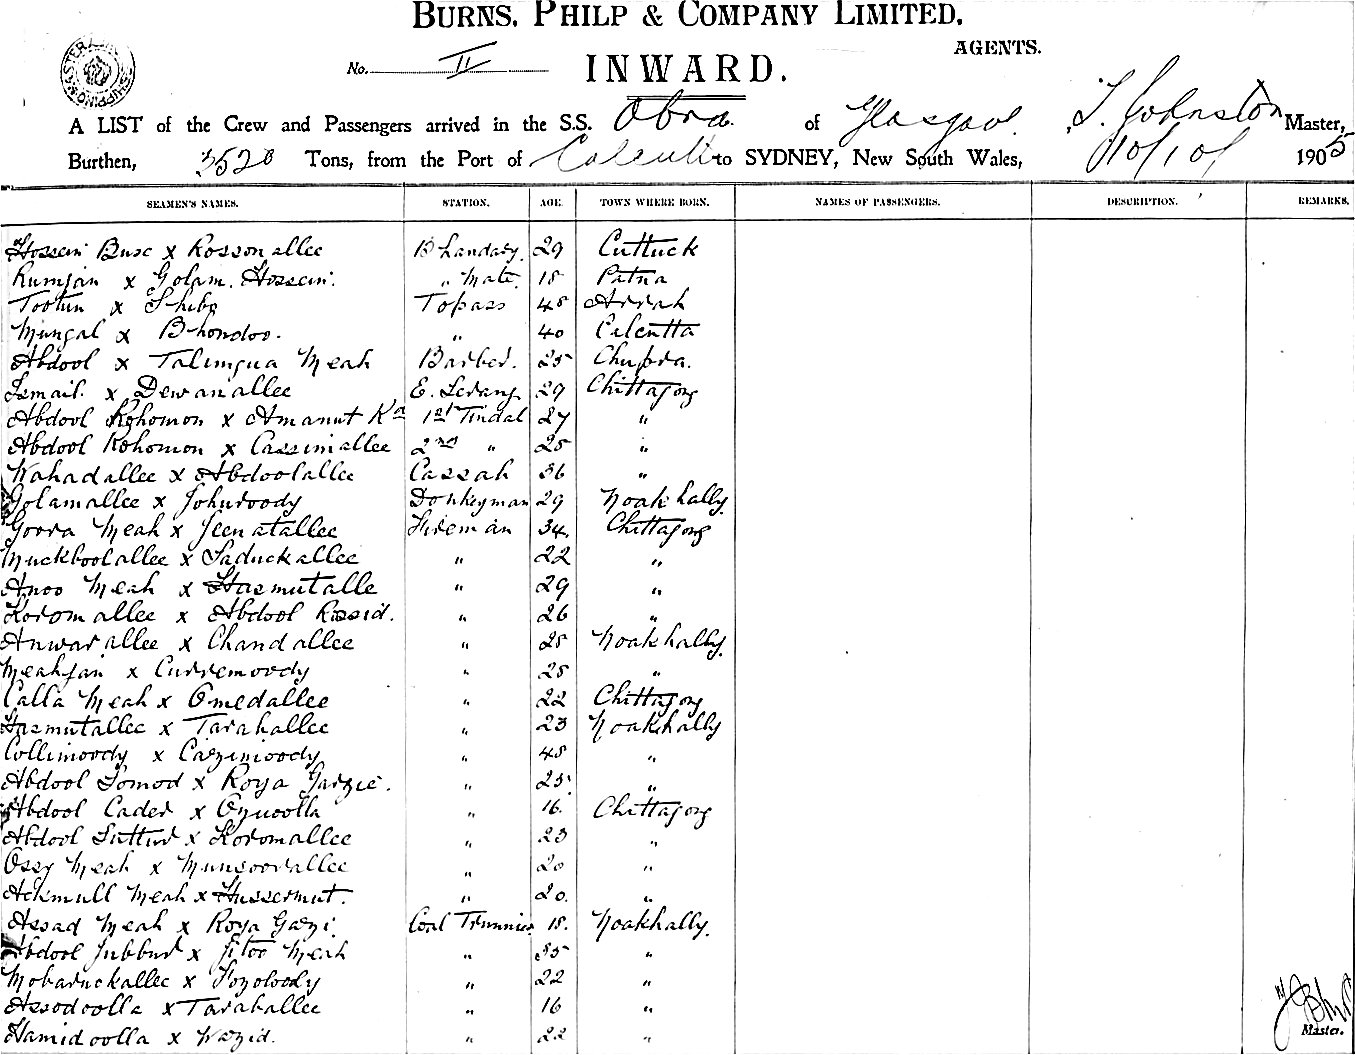 BURNS, PHILP & COMPANY LIMITED,
AGENTS.
No. II INWARD.
A LIST of the Crew and Passengers arrived in the S.S. Obra. of Glasgow. J. Johnston Master,
Burthen, 3520 Tons, from the Port of to SYDNEY, New South Wales, 10/10/ 1905
SEAMEN'S NAMES. STATION. AGE. TOWN WHERE BORN. NAMES OF PASSENGERS. DESCRIPTION. REMARKS.
Hossein Buse x Rossonallee Bhandary. 29 Cuttuck
Rumjan x Golam. Hossein. " Mate. 18 Patna
x Topass 45 Arrah
Mungal x Bhondoo. " 40 Calcutta
Abdool x Talimgua Meah Barber. 25 Chupra.
Ismail. x Dewanallee E. Serang 29 Chittagong
Abdool Rohomon x Amanut 1st Tindal 27 "
Abdool Rohomon x Cassimallee 2nd " 25 "
Wahadallee x Abdoolallee Cassab 36 "
Golamallee x Johuroody Donkeyman 29 Noakhally
Goora Meah x Jeenatallee Fireman 34. Chittagong
Muckboolallee x Saduckallee " 22 "
Anoo Meah x Hasmutalle " 29 "
Koromallee x Abdool Rossid. " 26 "
Anwarallee x Chandallee " 25 Noakhally.
Meahjan x Curremoody " 25 "
Calla Meah x Omedallee " 22 Chittagong
Hasmutallee x Tarahallee " 23 Noakhally
Collimoody x Cazimoody " 45 "
Abdool Somod x Roya Gazie. " 25 "
Abdool Cader x " 16. Chittagong
Abdool Suttur x Koromallee " 23 "
Ossy Meah x Munsoorallee " 20 "
Ackmull Meah x Hussermut. " 20. "
Assad Meah x Roya Gazi. Coal Trimmer 18. Noakhally.
Abdool Jubbur x Fitoo Meah " 35 "
Mobaruckallee x Fozoloody " 22 "
Assodoolla x Tarahallee " 16 "
Hamidoolla x Wazid. " 22 "
Master.